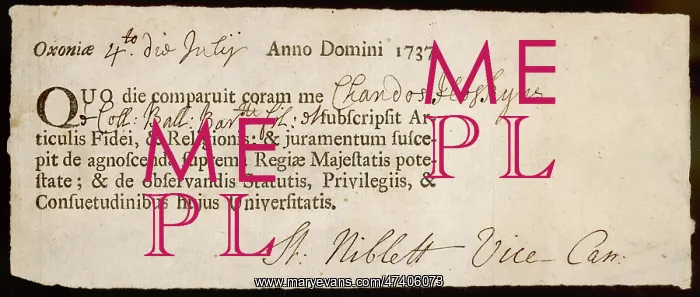 Oxoniæ 4.to die Julij Anno Domini 1737
QUO die comparuit coram me Chandos Hoskyns
è Coll: Ball: Bar.tti fil. & ſubſcripſit Ar-
ticulis Fidei, & Religionis; & juramentum ſuſce-
pit de agnoſcenda ſuprema Regiæ Majeſtatis pote-
ſtate; & de obſervandis Statutis, Privilegiis, &
Conſuetudinibus hujus Univerſitatis.
St: Niblett Vice-Can:
ME
PL
ME
PL
www.maryevans.com/47406073